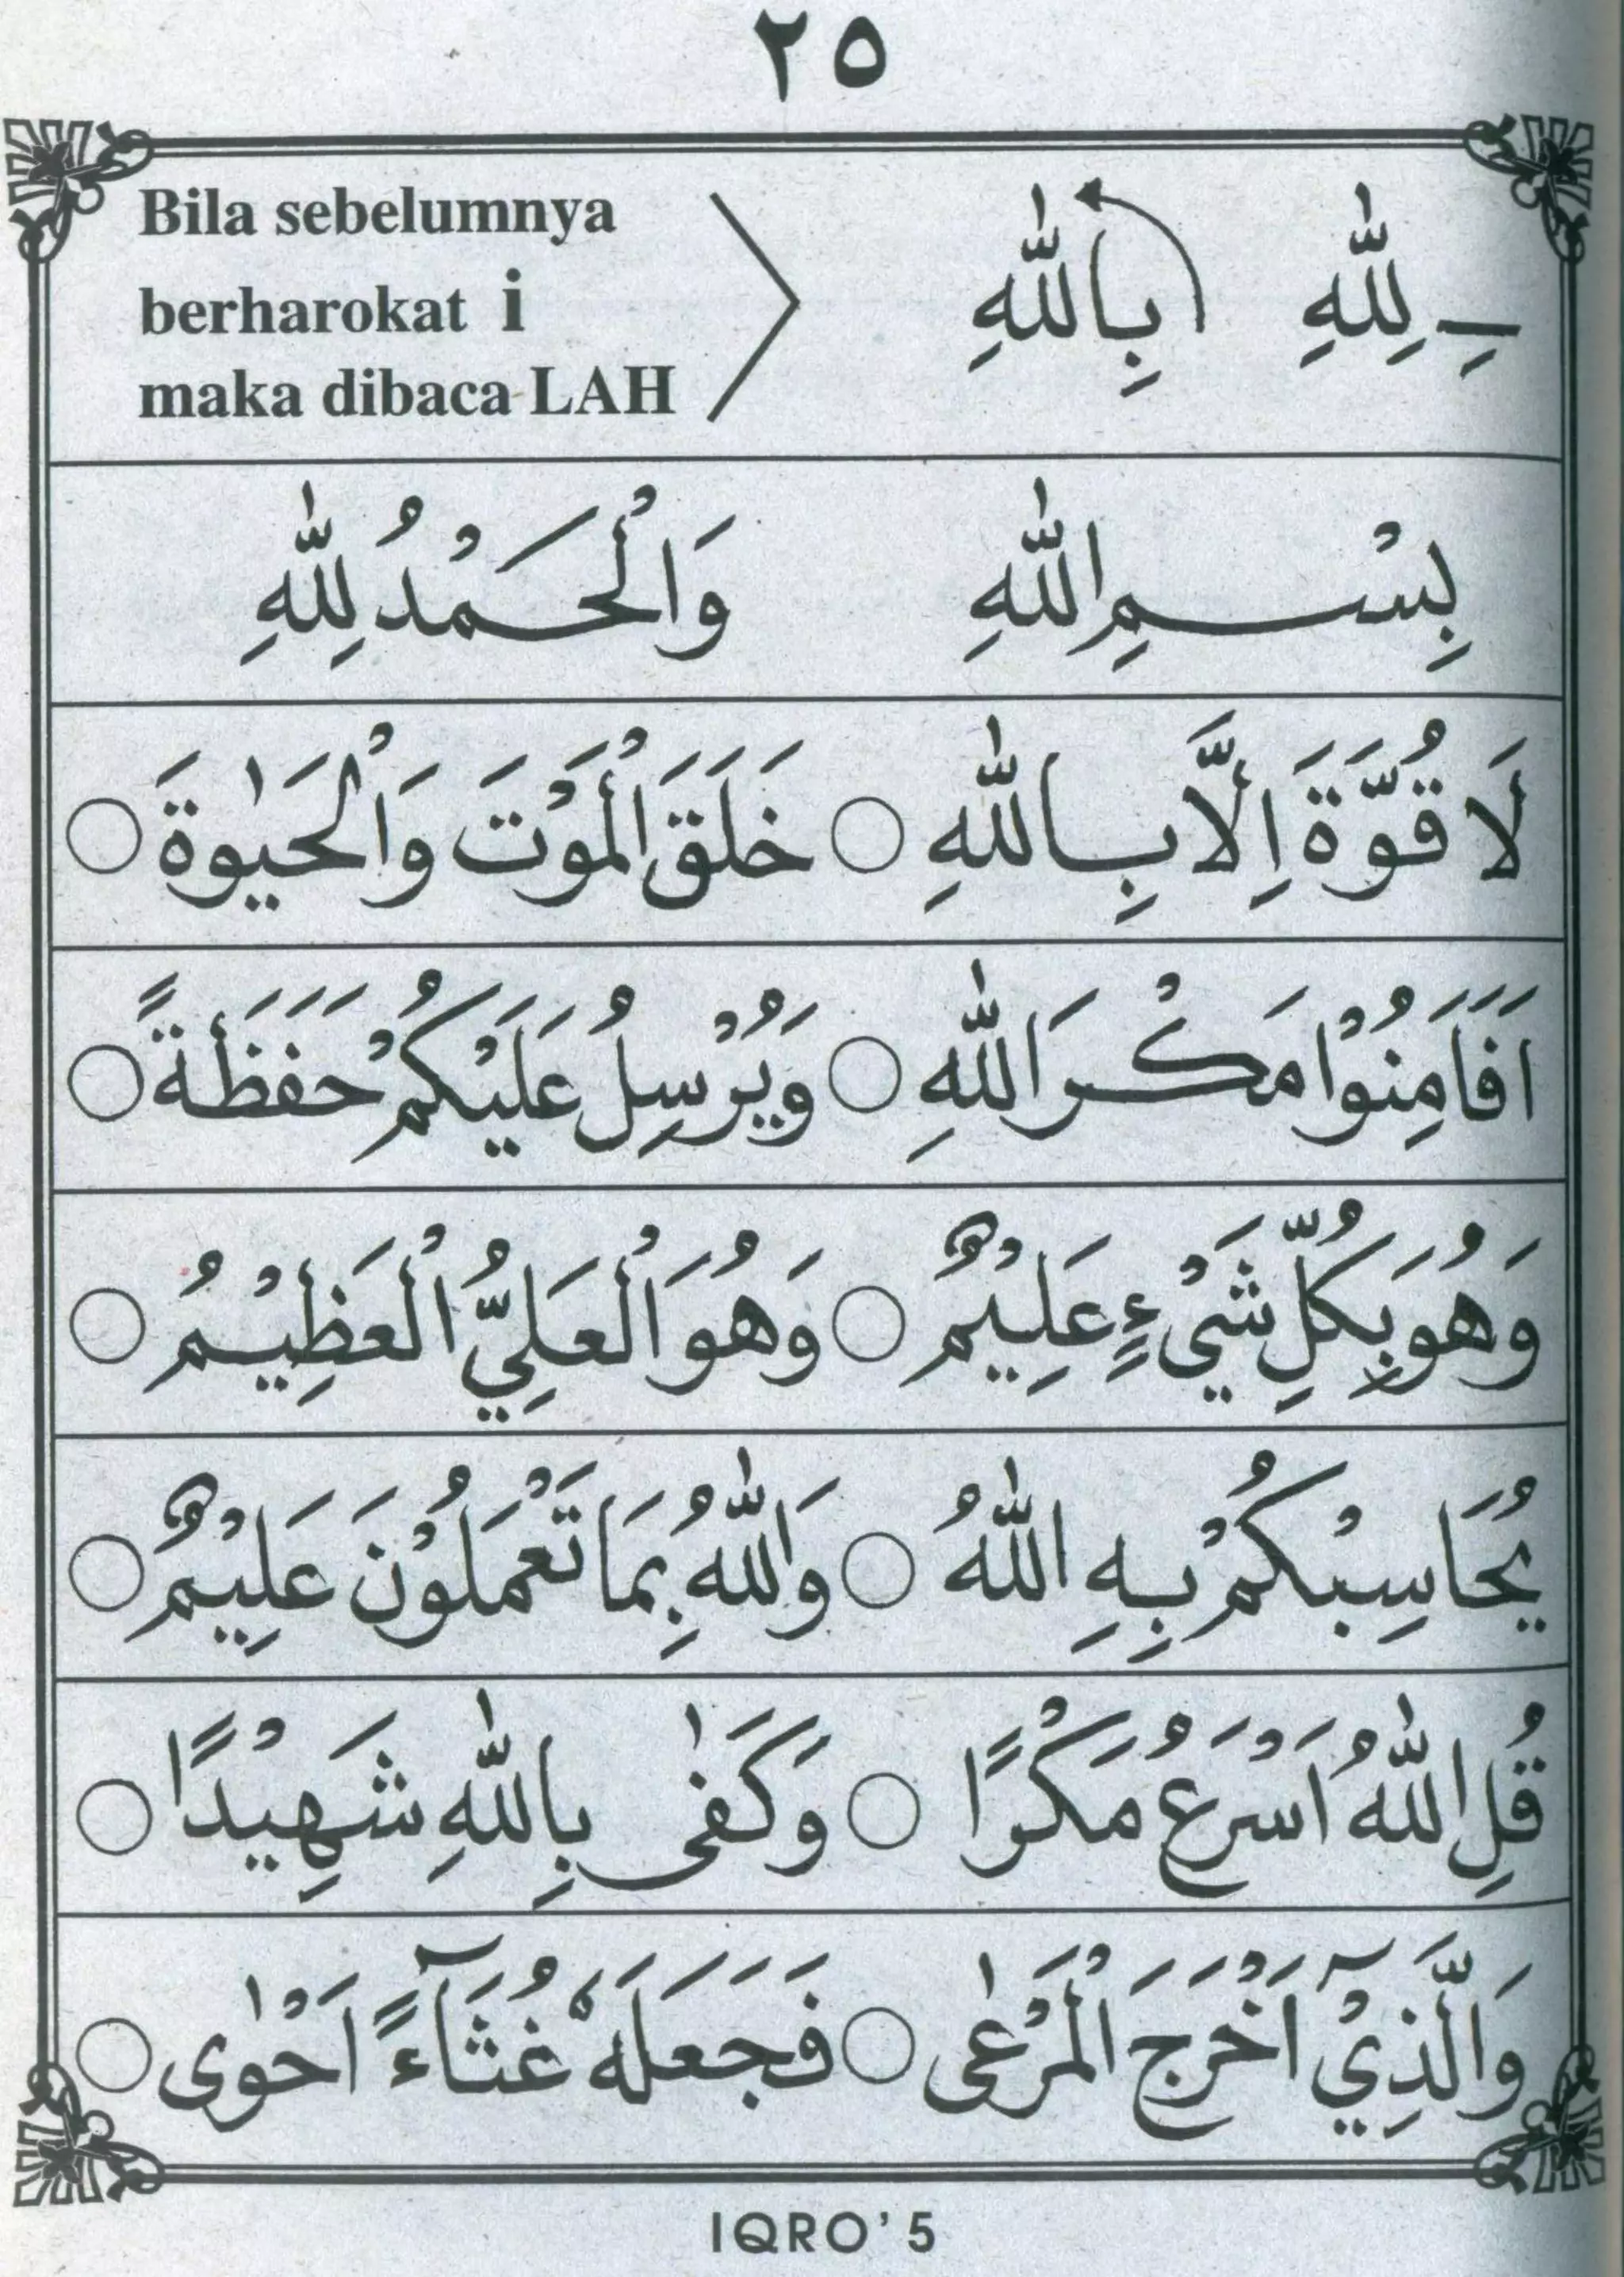 ٢٥
ـِ لِلّٰهِ بِاللّٰهِ
Bila sebelumnya
berharokat i
maka dibaca LAH
بِسْـــمِ اللّٰهِ وَالْحَـمْدُ لِلّٰهِ
لَا قُوَّةَ اِلَّا بِـاللّٰهِ ○ خَلَقَ الْمَوْتَ وَالْحَيٰوةَ ○
اَفَاَمِنُوْا مَكْـرَ اللّٰهِ ○ وَيُرْسِلُ عَلَيْكُمْ حَفَظَةً ○
وَهُوَ بِكُلِّ شَيْءٍ عَلِيْمٌ ○ وَهُوَ الْعَلِيُّ الْعَظِيْمُ ○
يُحَاسِبْكُمْ بِـهِ اللّٰهُ ○ وَاللّٰهُ بِمَا تَعْمَلُوْنَ عَلِيْمٌ ○
قُلِ اللّٰهُ اَسْرَعُ مَكْرًا ○ وَكَفٰى بِاللّٰهِ شَهِيْدًا ○
وَالَّذِيْٓ اَخْرَجَ الْمَرْعٰى ○ فَجَعَلَهٗ غُثَآءً اَحْوٰى ○
IQRO' 5